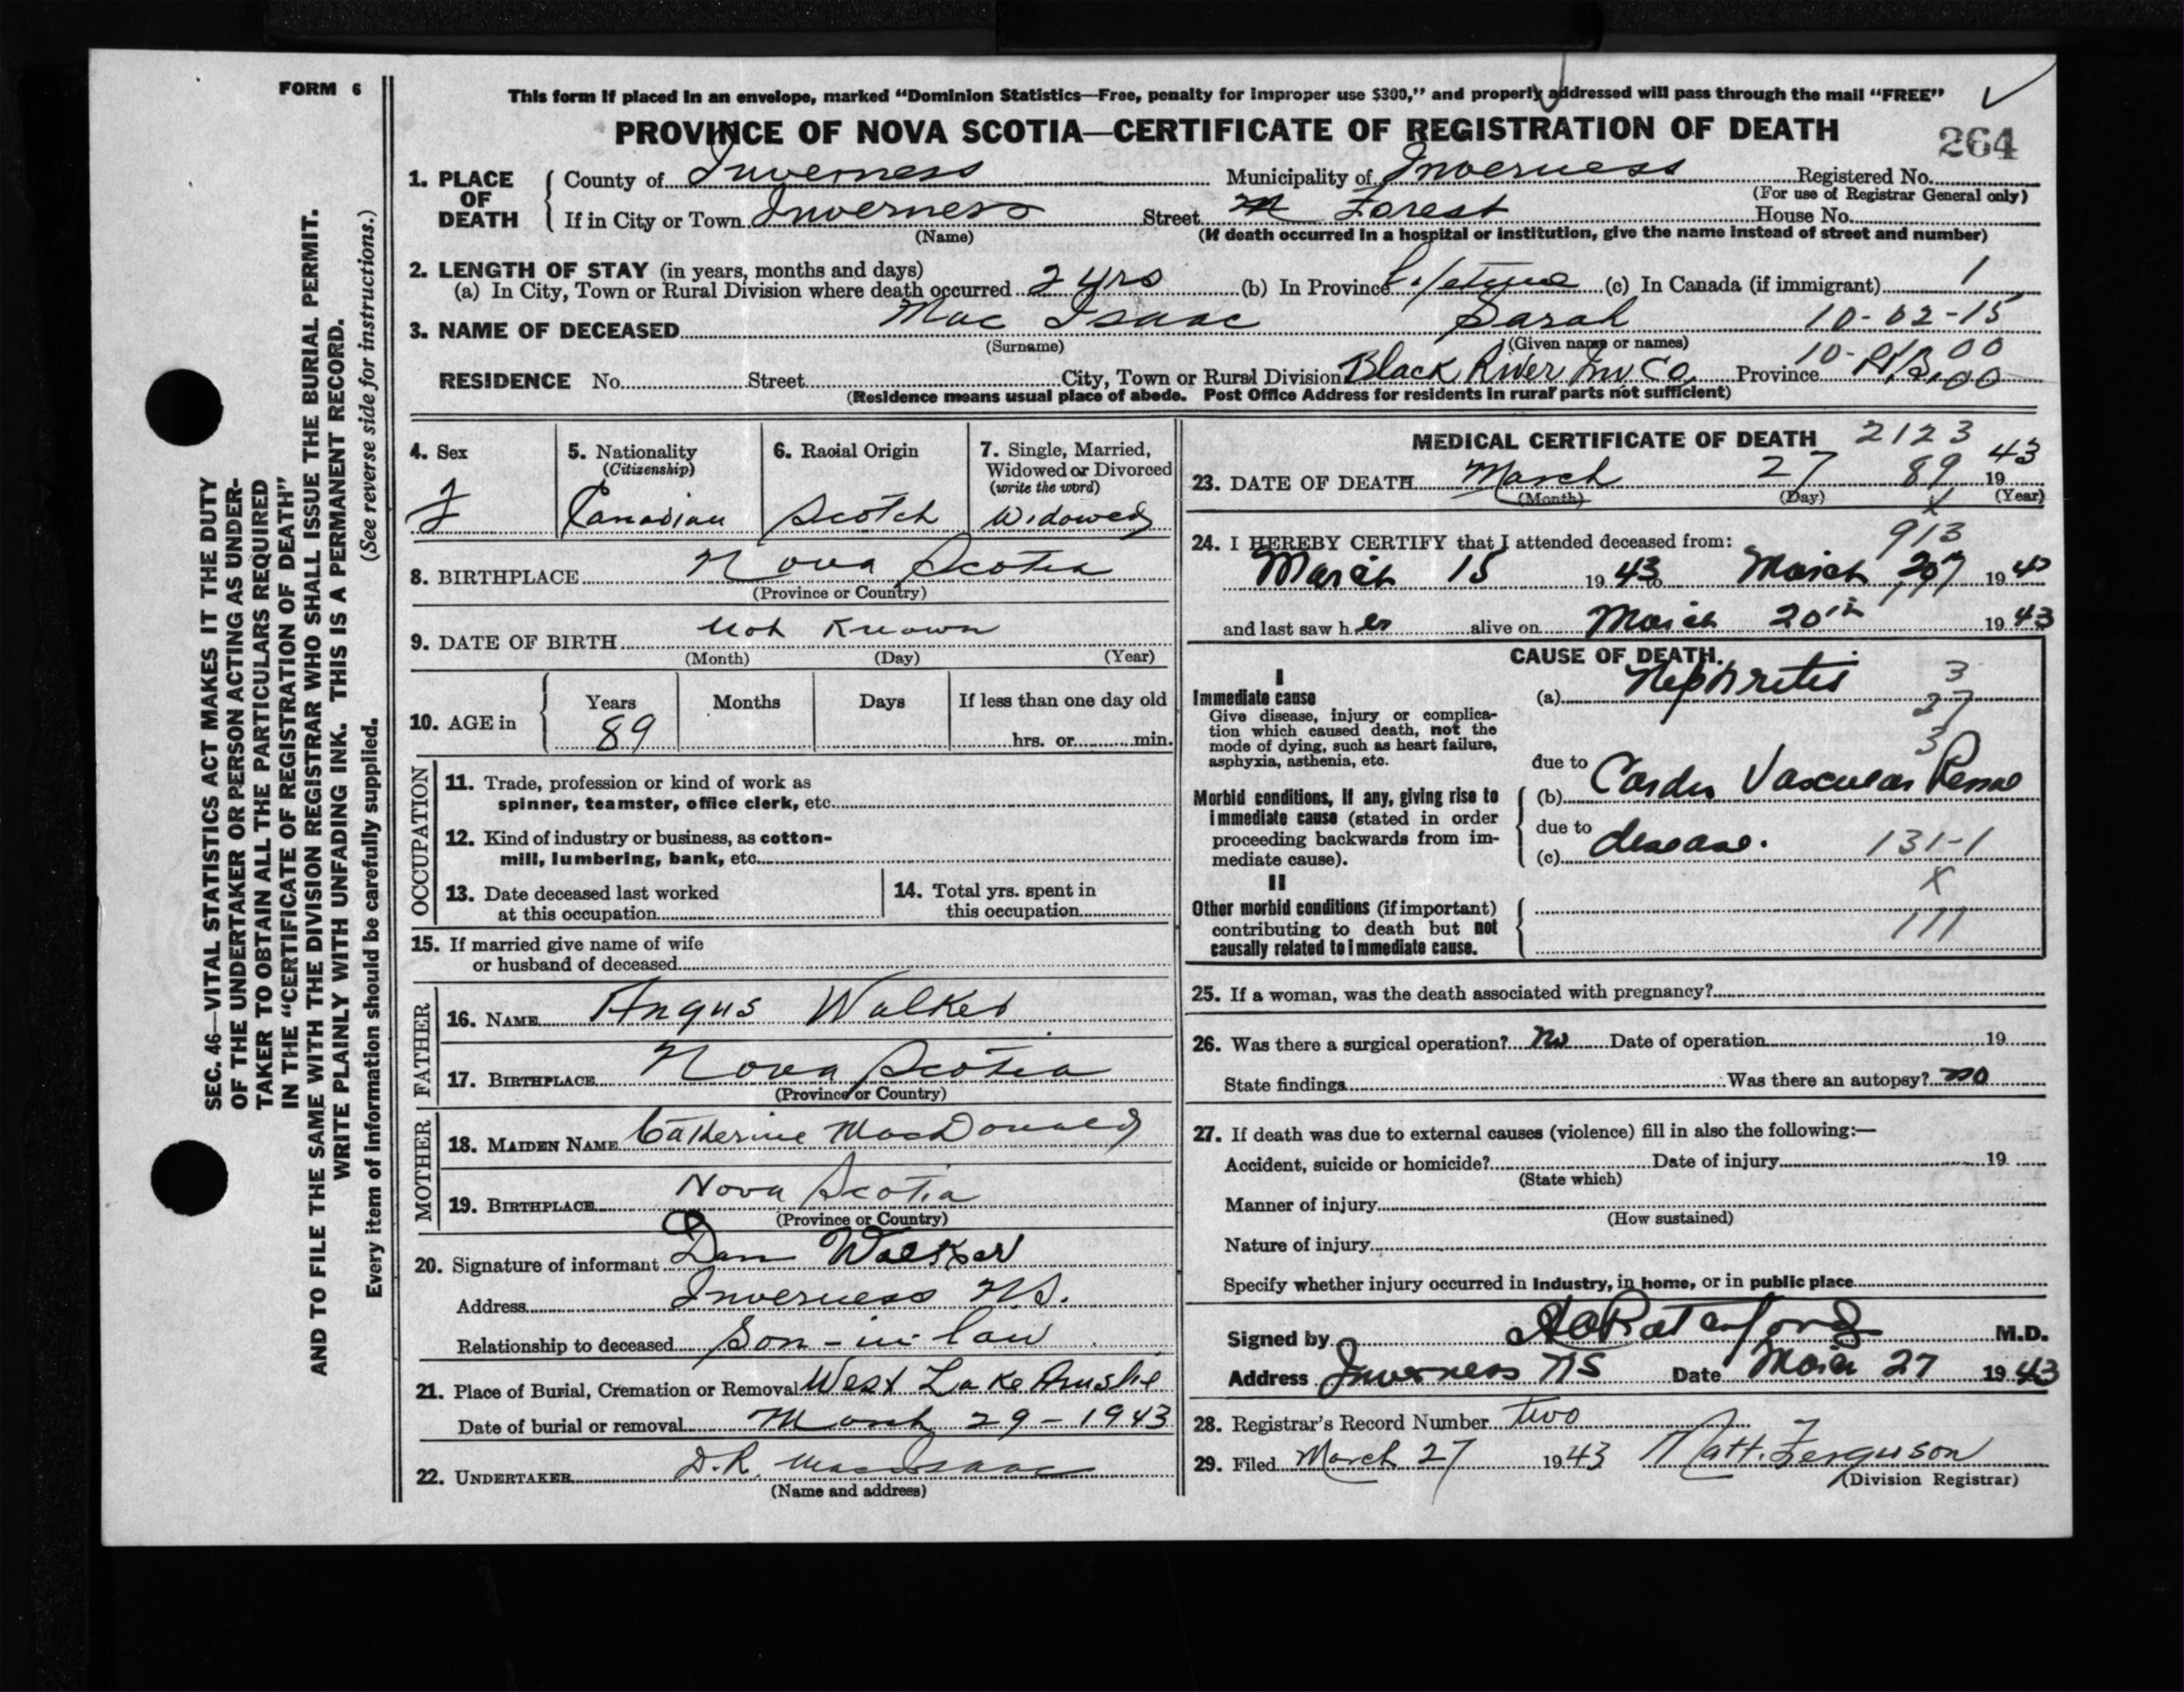 FORM 6
This form if placed in an envelope, marked "Dominion Statistics—Free, penalty for improper use $300," and properly addressed will pass through the mail "FREE"
PROVINCE OF NOVA SCOTIA—CERTIFICATE OF REGISTRATION OF DEATH
264
1. PLACE OF DEATH
County of Inverness Municipality of Inverness Registered No.
(For use of Registrar General only)
If in City or Town Inverness Street M Forest House No.
(Name) (If death occurred in a hospital or institution, give the name instead of street and number)
2. LENGTH OF STAY (in years, months and days)
(a) In City, Town or Rural Division where death occurred 2 yrs (b) In Province Lifetime (c) In Canada (if immigrant) 1
3. NAME OF DECEASED Mac Isaac Sarah 10-02-15
(Surname) (Given name or names)
10-01-00
RESIDENCE No. Street City, Town or Rural Division Black River Inv Co. Province N.S. 00
(Residence means usual place of abode. Post Office Address for residents in rural parts not sufficient)
4. Sex
F
5. Nationality
(Citizenship)
Canadian
6. Racial Origin
Scotch
7. Single, Married,
Widowed or Divorced
(write the word)
Widowed
8. BIRTHPLACE Nova Scotia
(Province or Country)
9. DATE OF BIRTH Not Known
(Month) (Day) (Year)
10. AGE in
Years Months Days If less than one day old
89 hrs. or min.
OCCUPATION
11. Trade, profession or kind of work as
spinner, teamster, office clerk, etc.
12. Kind of industry or business, as cotton-
mill, lumbering, bank, etc.
13. Date deceased last worked
at this occupation
14. Total yrs. spent in
this occupation
15. If married give name of wife
or husband of deceased
FATHER
16. NAME Angus Walker
17. BIRTHPLACE Nova Scotia
(Province or Country)
MOTHER
18. MAIDEN NAME Catherine MacDonald
19. BIRTHPLACE Nova Scotia
(Province or Country)
20. Signature of informant Dan Walker
Address Inverness N.S.
Relationship to deceased Son-in-law
21. Place of Burial, Cremation or Removal West Lake Ainslie
Date of burial or removal March 29-1943
22. UNDERTAKER D.R. MacIsaac
(Name and address)
MEDICAL CERTIFICATE OF DEATH 2123
23. DATE OF DEATH March 27 89 19 43
(Month) (Day) (Year)
X
24. I HEREBY CERTIFY that I attended deceased from: 913
March 15 19 43 to March 19
and last saw her alive on March 20th 19 43
CAUSE OF DEATH.
I
Immediate cause
Give disease, injury or complica-
tion which caused death, not the
mode of dying, such as heart failure,
asphyxia, asthenia, etc.
(a) Nephritis 3
37
3
due to
Morbid conditions, if any, giving rise to
immediate cause (stated in order
proceeding backwards from im-
mediate cause).
(b) Cardio Vascular Renal
due to
(c) disease. 131-1
X
II
Other morbid conditions (if important)
contributing to death but not
causally related to immediate cause.
111
25. If a woman, was the death associated with pregnancy?
26. Was there a surgical operation? No Date of operation 19
State findings Was there an autopsy? no
27. If death was due to external causes (violence) fill in also the following:—
Accident, suicide or homicide? Date of injury 19
(State which)
Manner of injury
(How sustained)
Nature of injury
Specify whether injury occurred in Industry, in home, or in public place
Signed by M.D.
Address Inverness NS Date March 27 19 43
28. Registrar's Record Number two
29. Filed March 27 1943 Matt. Ferguson
(Division Registrar)
SEC. 46—VITAL STATISTICS ACT MAKES IT THE DUTY
OF THE UNDERTAKER OR PERSON ACTING AS UNDER-
TAKER TO OBTAIN ALL THE PARTICULARS REQUIRED
IN THE "CERTIFICATE OF REGISTRATION OF DEATH"
AND TO FILE THE SAME WITH THE DIVISION REGISTRAR WHO SHALL ISSUE THE BURIAL PERMIT.
WRITE PLAINLY WITH UNFADING INK. THIS IS A PERMANENT RECORD.
Every item of information should be carefully supplied. (See reverse side for instructions.)